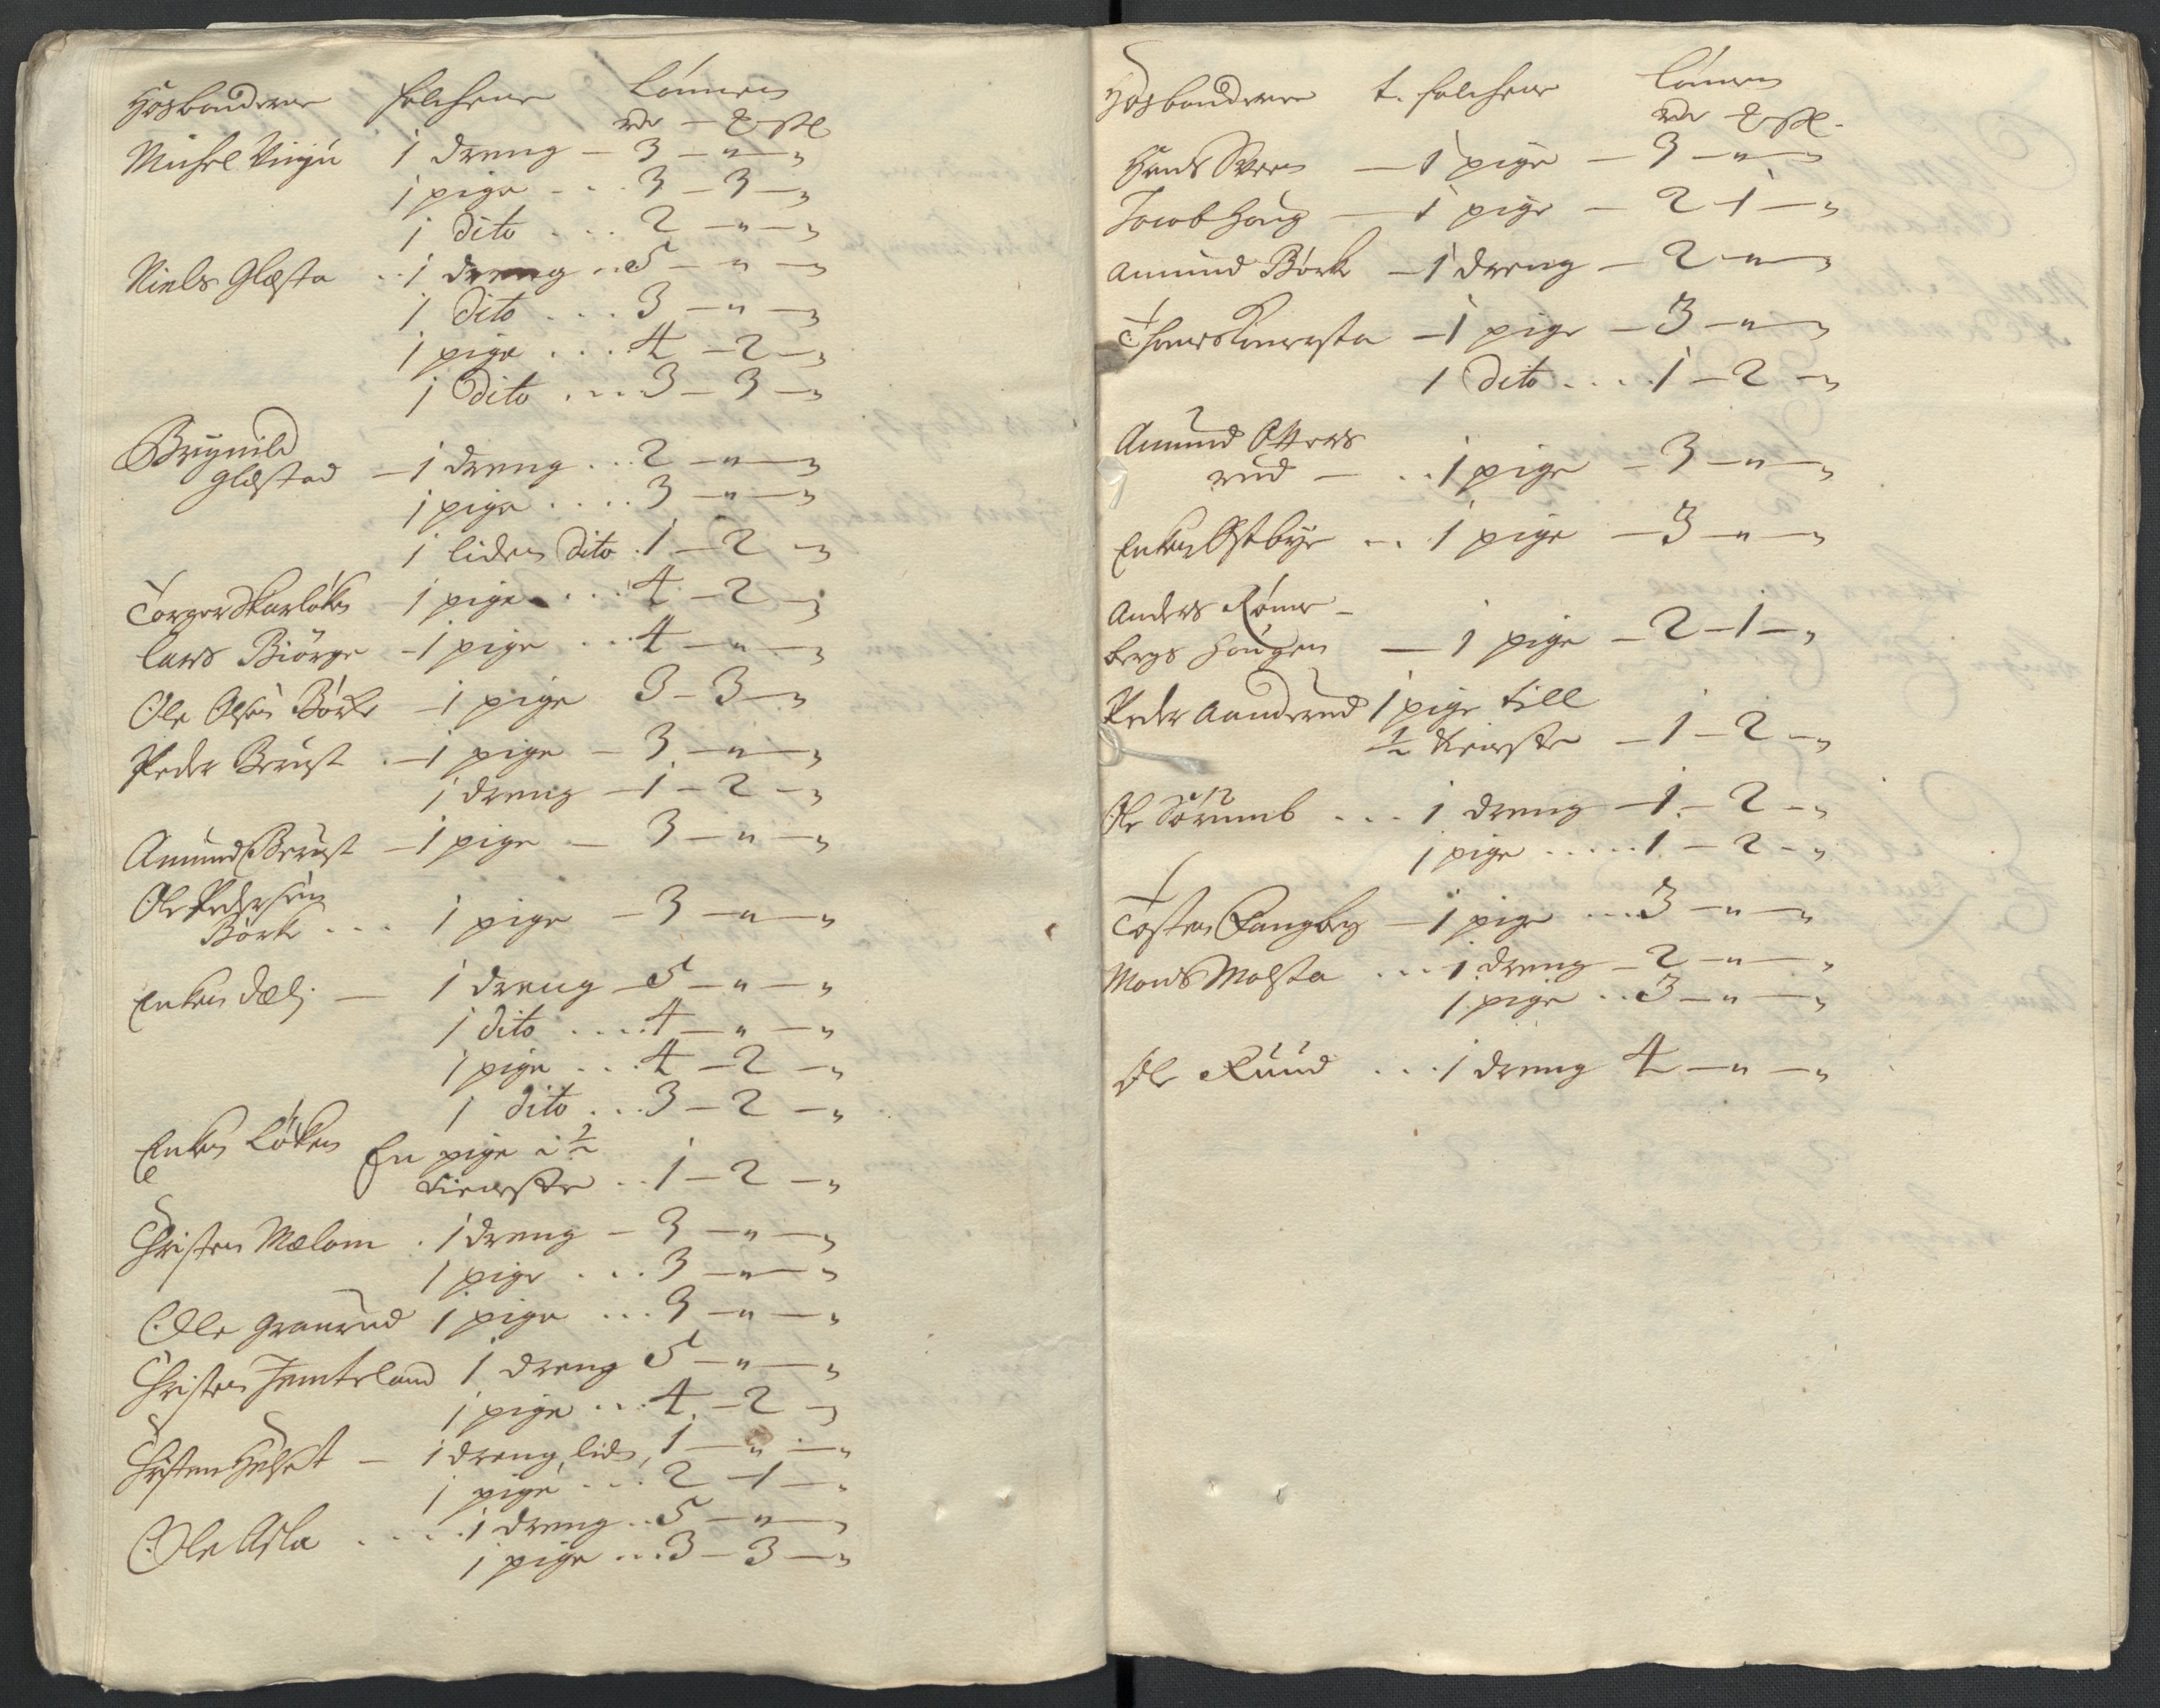 Hosbonderne folchene Lönnen
rdr — ₰ —
Michel Vinju 1 dreng — 3 — " — "
1 pige . . . 3 — 3 — "
1 dito . . . . 2 — " — "
Niels Glæsta . . 1 dreng . . 5 — " — "
1 dito . . . . 3 — " — "
1 pige . . . . 4 — 2 — "
1 dito . . . 3 — 3 — "
Brynild
Glæstad — 1 dreng . . . 2 — " — "
1 pige . . . . . 3 — " — "
1 liden dito . 1 — 2 — "
Torger Skarløken 1 pige . . . 4 — 2 — "
Lars Biörge — 1 pige . . . 4 — " — "
Ole Olsen Börke — 1 pige 3 — 3 — "
Peder Berust . — 1 pige — 3 — " — "
1 dreng — 1 — 2 — "
Amund Berust — 1 pige — 3 — " — "
Ole Pedersen
Börke . . . 1 pige — 3 — " — "
Enken Dæli — 1 dreng — 5 — " — "
1 dito . . . . 4 — " — "
1 pige . . . 4 — 2 — "
1 dito . . . 3 — 2 — "
Enken Löken En pige i ½
tieneste . . 1 — 2 — "
Christen Mælom . 1 dreng — 3 — " — "
1 pige . . . 3 — " — "
Olle Granrud 1 pige . . . 3 — " — "
Christen Jemteland 1 dreng 5 — " — "
1 pige . . . 4 — 2 — "
Christen Helset — 1 dreng, liden, 1 — " — "
1 pige . . . 2 — 1 — "
Ole Asla . . . . 1 dreng . . 5 — " — "
1 pige . . . 3 — 3 — "
Hosbonderne t. folchene Lönnen
rdr ₰ —
Hans Sveen — 1 pige — 3 — " — "
Jacob Houg — 1 pige — 2 1 — "
Amund Börke — 1 dreng — 2 — " — "
— 1 pige — 3 — " — "
1 dito . . . . 1 — 2 — "
Amund Otters
rud — . . 1 pige — 3 — " — "
Enken Østbye . . . 1 pige — 3 — " — "
Anders Röme —
bergs Hougen — 1 pige — 2 — 1 — "
Peder Aanderud 1 pige till
½ tieneste — 1 — 2 — "
Ole Sörumb . . . 1 dreng — 1 — 2 — "
1 pige . . . . . 1 — 2 — "
Tosten Fangberg — 1 pige . . . 3 — " — "
Mons Molsta . . . 1 dreng — 2 — " — "
1 pige . . 3 — " — "
Ole Ruud . . . 1 dreng 4 — " — "